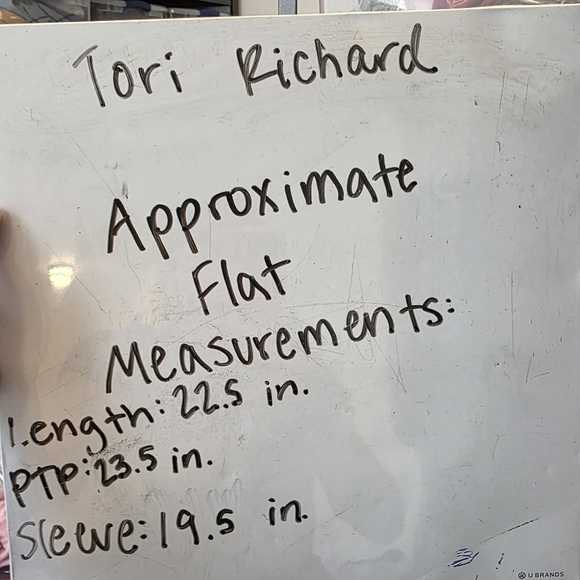 Tori Richard
Approximate
Flat
Measurements:
Length: 22.5 in.
PTP: 23.5 in.
Sleeve: 19.5 in.
U BRANDS